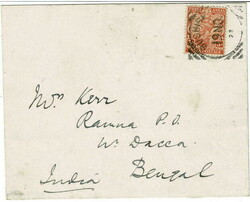 Mrs Kerr
Ramna P.O.
Nr Dacca
India Bengal